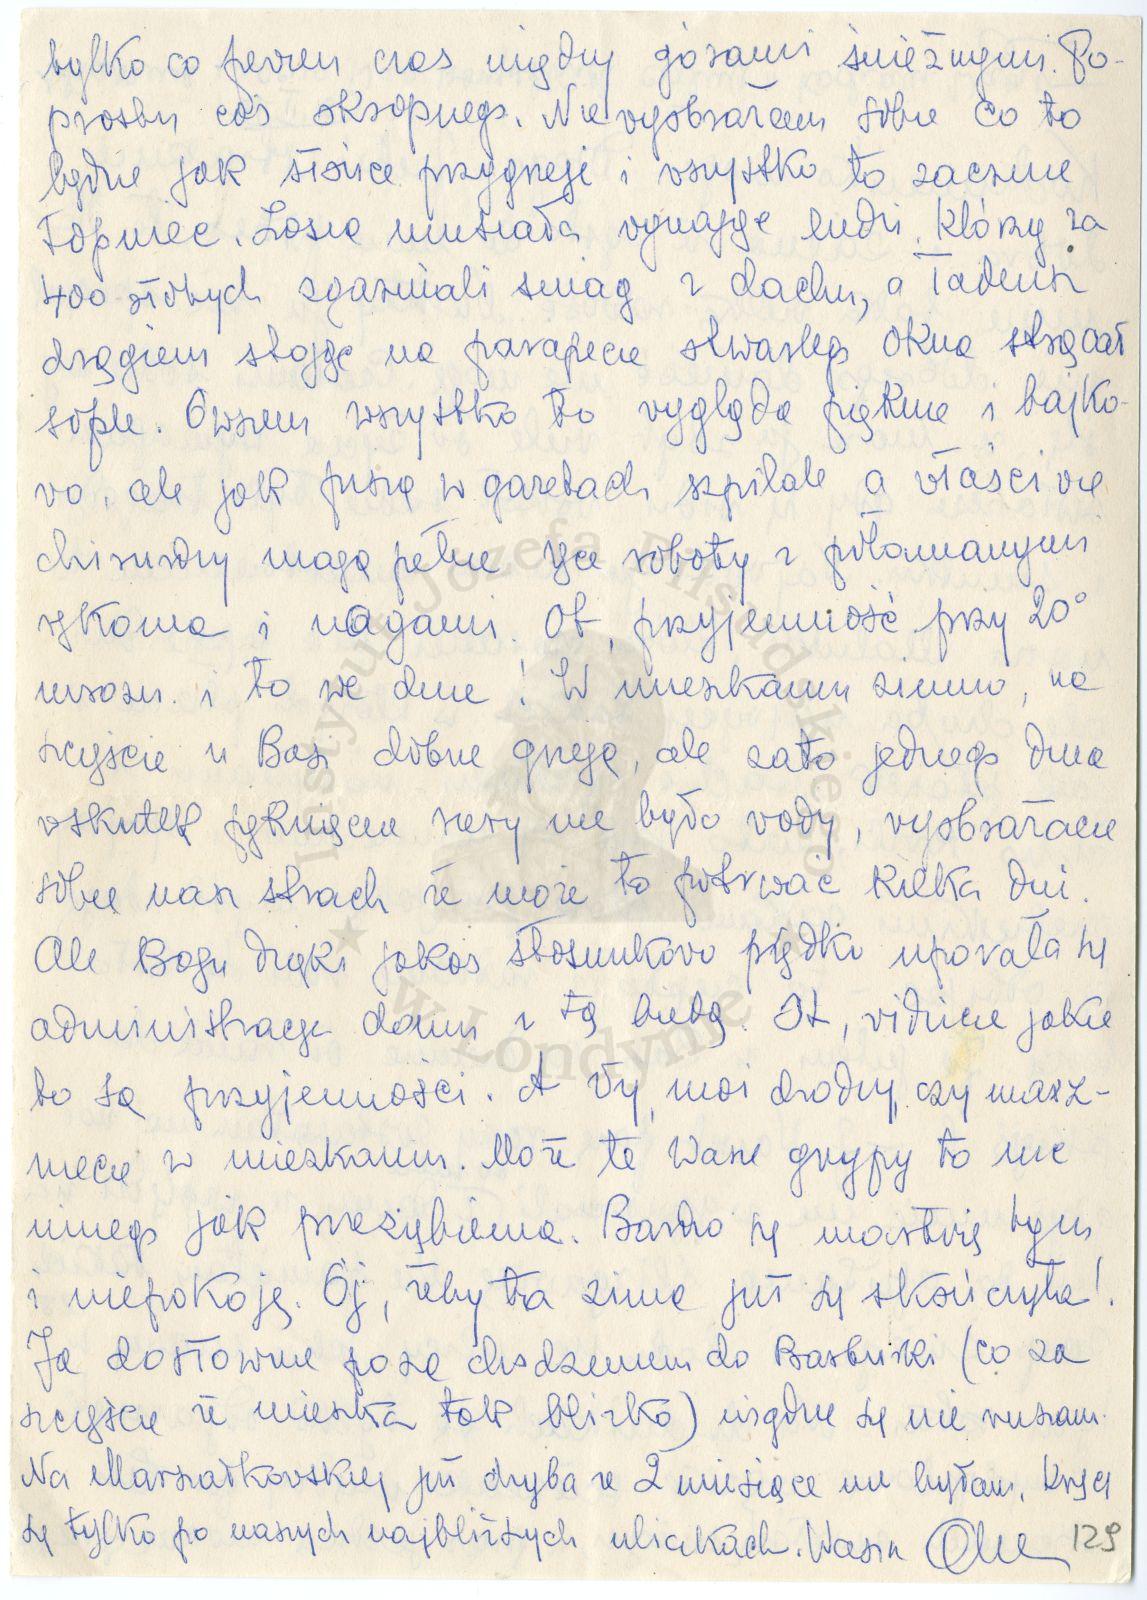 tylko co pewien czas między górami śnieżnymi. Po-
prostu coś okropnego. Nie wyobrażam sobie co to
będzie jak słońce przygrzeje i wszystko to zacznie
topnieć. Zosia musiała wynająć ludzi, którzy za
400 złotych zgarniali śnieg z dachu, a Tadeusz
drągiem stojąc na parapecie otwartego okna strącał
sople. Owszem wszystko to wygląda pięknie i bajko-
wo, ale jak piszą w gazetach szpitale a właściwie
chirurdzy mają pełne ręce roboty z połamanymi
rękoma i nogami. Ot, przyjemność przy 20°
mrozu i to we dnie! W mieszkaniu zimno, na
szczęście u Basi dobrze grzeją, ale zato jednego dnia
wskutek pęknięcia rury nie było wody, wyobrażacie
sobie nasz strach że może to potrwać kilka dni.
Ale Bogu dzięki jakoś stosunkowo prędko uporała się
administracja domu z tą biedą. Ot, widzicie jakie
to są przyjemności. A Wy, moi drodzy, czy marz-
niecie w mieszkaniu. Może te Wasze grypy to nic
innego jak przeziębienie. Bardzo się martwię tym
i niepokoję. Oj, żeby ta zima już się skończyła!
Ja dosłownie poza chodzeniem do Barbórki (co za
szczęście że mieszka tak blizko) nigdzie się nie ruszam.
Na Marszałkowskiej już chyba ze 2 miesiące nie byłam. Kręcę
się tylko po naszych najbliższych uliczkach. Wasza Ola
129
Instytut Józefa Piłsudskiego
w Londynie